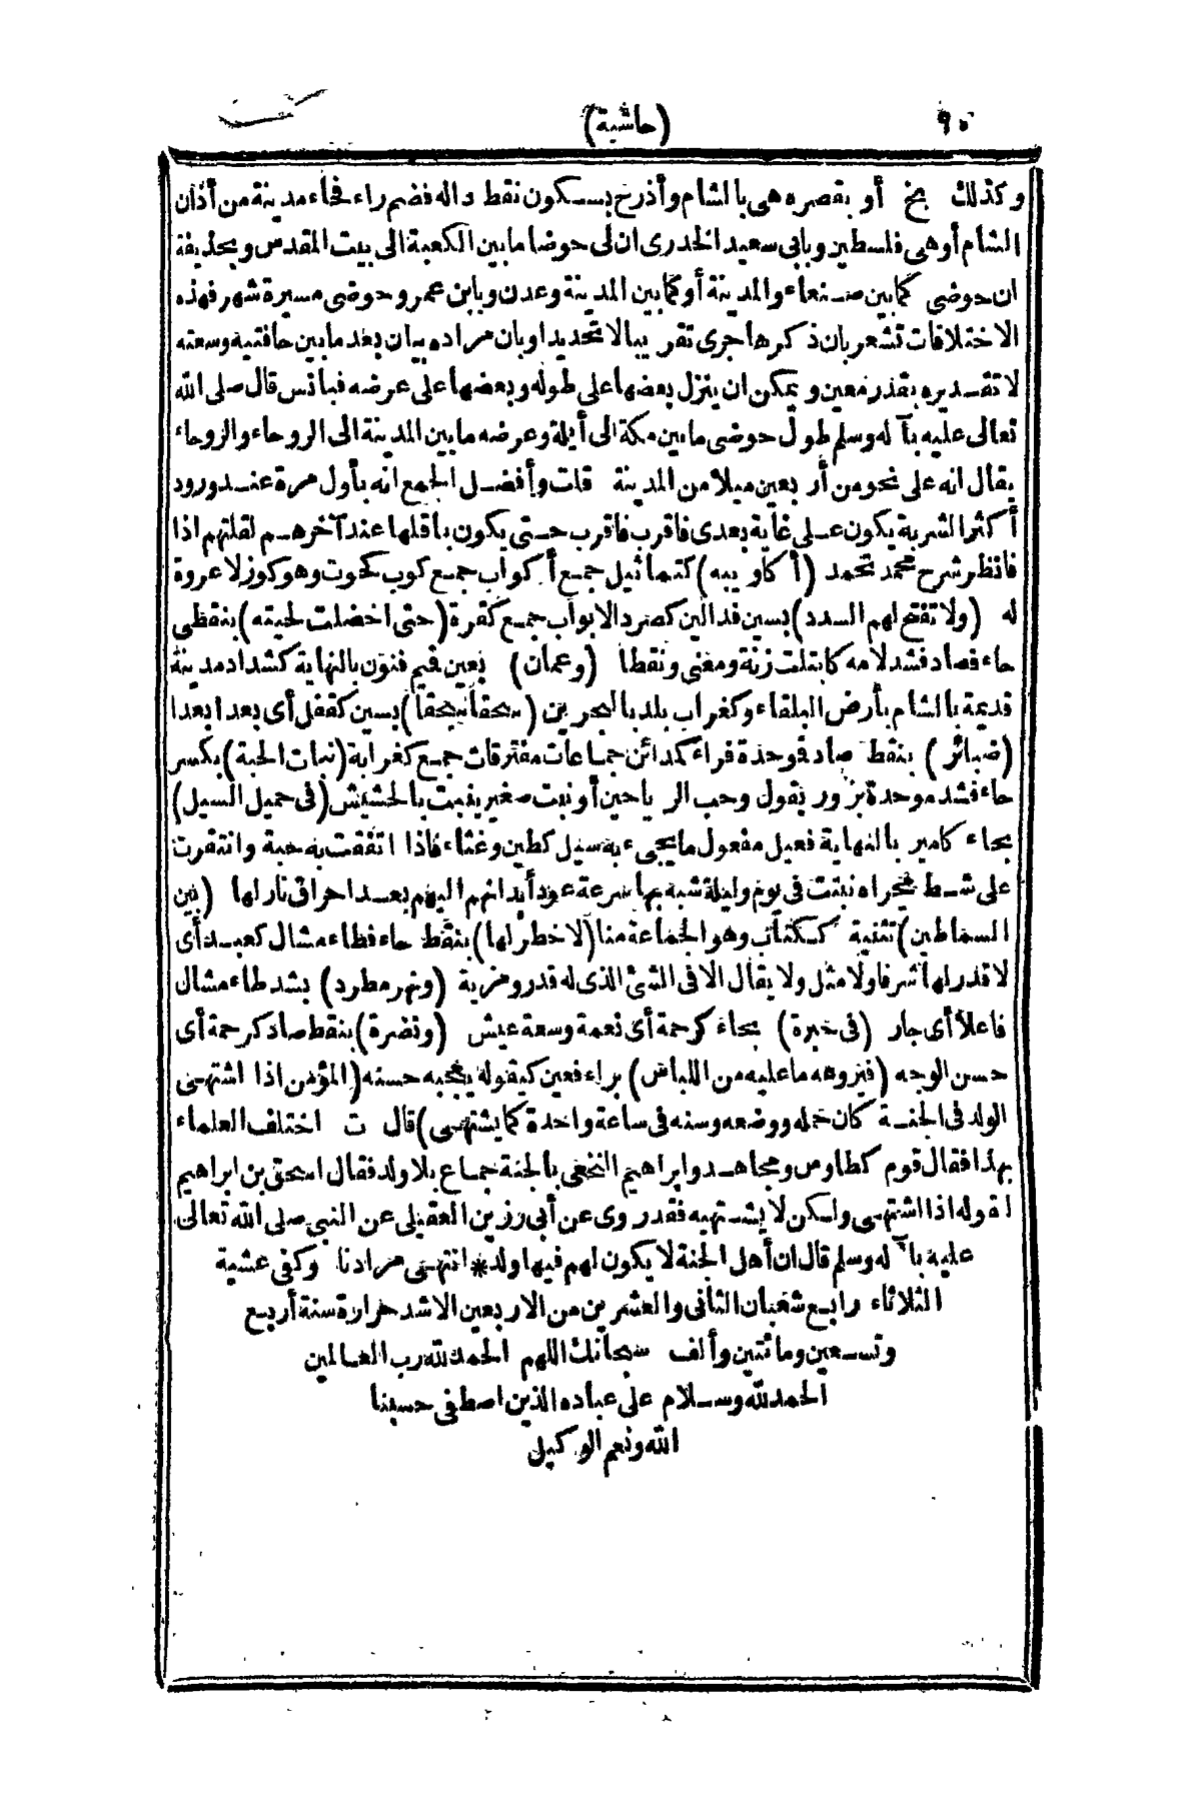 ٩٠ (حاشية)
وكذلك بخ أو بقصره هى بالشام وأذرح بسكون نقط داله فضم راء فحاء مدينة من أذان
الشام أو هى فلسطين وبابى سعيد الخدرى ان لى حوضا ما بين الكعبة الى بيت المقدس وبحذيفة
ان حوضى كما بين صنعاء والمدينة أو كما بين المدينة وعدن وبابن عمرو حوضى مسيرة شهر فهذه
الاختلافات تشعر بان ذكرها جرى تقريبا لا تحديدا وبان مراده بيان بعد ما بين حافتيه وسعته
لا تقديره بقدر معين ويمكن ان ينزل بعضها على طوله وبعضها على عرضه فبانس قال صلى الله
تعالى عليه بآله وسلم طول حوضى ما بين مكة الى أيلة وعرضه ما بين المدينة الى الروحاء والروحاء
يقال انه على نحو من أربعين ميلا من المدينة قلت وأفضل الجمع انه بأول مرة عند ورود
أكثر الشربة يكون على غاية بعدى فاقرب فاقرب حتى يكون باقلها عند آخرهم لقلتهم اذا
فانظر شرح محمد تحمد (أكاويبه) كتماثيل جمع أكواب جمع كوب كحوت وهو كوز لا عروة
له (ولا تفتح لهم السدد) بسين فدالين كصرد الابواب جمع كقرة (حتى اخضلت لحيته) بنقطى
حاء فصاد فشد لامه كابتلت زنة ومعنى ونقطا (وعمان) بعين فميم فنون بالنهاية كشداد مدينة
قديمة بالشام بأرض البلقاء وكغراب بلد بالبحرين (سحقا سحقا) بسين كقفل أى بعدا بعدا
(ضبائر) بنقط صاد فوحدة فراء كمدائن جماعات مفترقات جمع كغرابة (نبات الحبة) بكسر
حاء فشد موحدة بزور بقول وحب الرياحين أو نبت صغير ينبت بالحشيش (فى حميل السيل)
بحاء كامير بالنهاية فعيل مفعول ما يجىء به سيل كطين وغثاء فاذا اتفقت به حبة وانتقرت
على شط مجراه نبتت فى يوم وليلة شبه بها سرعة عود أبدانهم اليهم بعد احراق نار لها (بين
السماطين) تثنية ككتاب وهو الجماعة منا (لا خطر لها) بنقط حاء فطاء مشال كعبد أى
لا قدر لها شرفا ولا مثل ولا يقال الا فى الشئ الذى له قدر ومزية (ونهر مطرد) بشد طاء مشال
فاعلا أى جار (فى خبرة) بحاء كرحمة أى نعمة وسعة عيش (ونضرة) بنقط صاد كرحمة أى
حسن الوجه (فيروهه ما عليه من اللباس) براء فعين كيقوله يعجبه حسنه (المؤمن اذا اشتهى
الولد فى الجنة كان حمله ووضعه وسنه فى ساعة واحدة كما يشتهى) قال ت اختلف العلماء
بهذا فقال قوم كطاوس ومجاهد وابراهيم النخعى بالجنة جماع بلا ولد فقال اسحق بن ابراهيم
لقوله اذا اشتهى ولكن لا يشتهيه فقد روى عن أبى رزين العقيلى عن النبى صلى الله تعالى
عليه بآله وسلم قال ان أهل الجنة لا يكون لهم فيها ولد * انتهى مرادنا وكفى عشية
الثلاثاء رابع شعبان الثانى والعشرين من الاربعين الاشد حرارة سنة أربع
وتسعين ومائتين وألف سبحانك اللهم الحمد لله رب العالمين
الحمد لله وسلام على عباده الذين اصطفى حسبنا
الله ونعم الوكيل